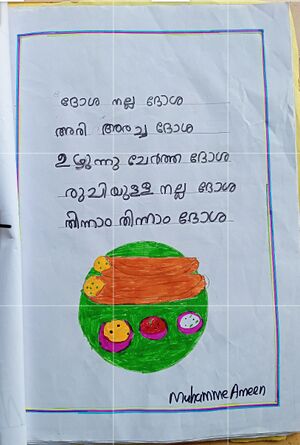 ദോശ നല്ല ദോശ
അരി അരച്ച ദോശ
ഉഴുന്നു ചേർത്ത ദോശ
രുചിയുള്ള നല്ല ദോശ
തിന്നാം തിന്നാം ദോശ
Muhamme Ameen